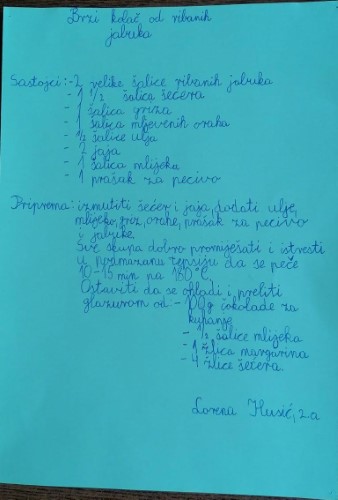 Brzi kolač od ribanih
jabuka
Sastojci:-2 velike šalice ribanih jabuka
- 1 1/2 šalica šećera
- 1 šalica griza
- 1 šalica mljevenih oraha
- 1/2 šalice ulja
- 2 jaja
- 1 šalica mlijeka
- 1 prašak za pecivo
Priprema: izmutiti šećer i jaja, dodati ulje,
mlijeko, griz, orahe, prašak za pecivo
i jabuke.
Sve skupa dobro promiješati i istresti
u podmazanu tepsiju da se peče
10-15 min na 180°C.
Ostaviti da se ohladi i preliti
glazurom od: - 100g čokolade za
kuhanje
- 1/2 šalice mlijeka
- 1 žlica margarina
- 4 žlice šećera
Lorena Husić, 2.a